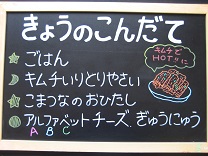 きょうのこんだて
ごはん
キムチいりとりやさい
キムチで
HOTに
こまつなのおひたし
アルファベットチーズ、ぎゅうにゅう
A B C